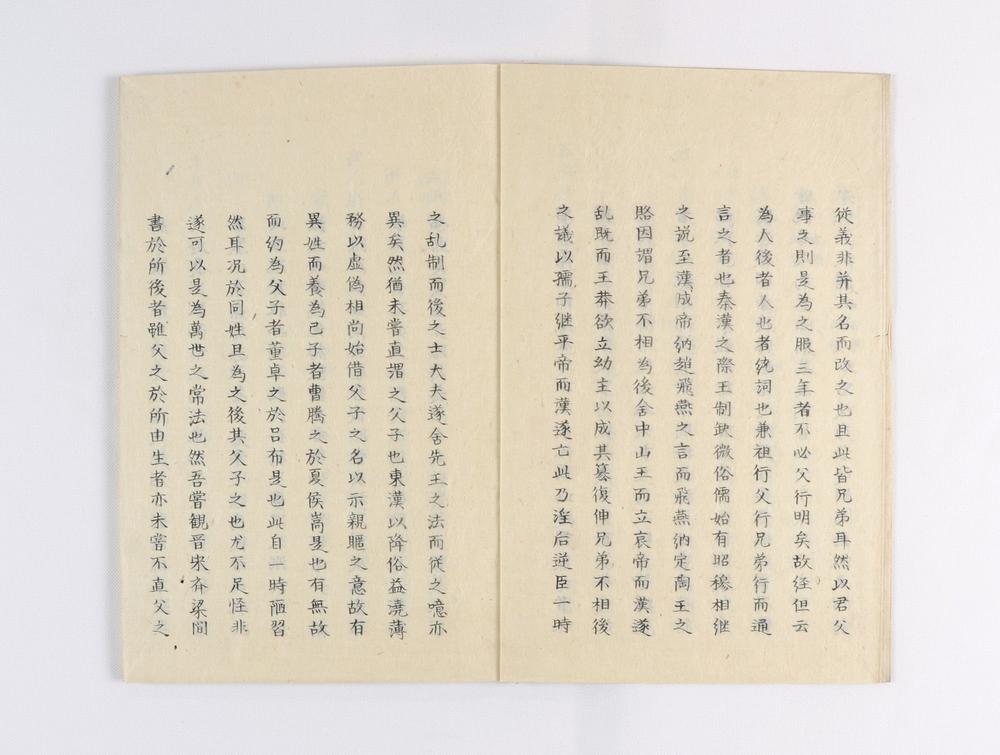 從義非并其名而改之也且此皆兄弟耳然以君父
事之則是為之服三年者不必父行明矣故経但云
為人後者人也者統詞也兼祖行父行兄弟行而通
言之者也秦漢之際王制缺微俗儒始有昭穆相継
之説至漢成帝納趙飛燕之言而飛燕納定陶王之
賂因謂兄弟不相為後舍中山王而立哀帝而漢遂
乱既而王莽欲立幼主以成其簒復伸兄弟不相後
之議以孺子継平帝而漢遂亡此乃淫后逆臣一時
之乱制而後之士大夫遂舍先王之法而従之噫亦
異矣然猶未嘗直謂之父子也東漢以降俗益澆薄
務以虚偽相尚始借父子之名以示親暱之意故有
異姓而養為己子者曹騰之於夏侯嵩是也有無故
而約為父子者董卓之於呂布是也此自一時陋習
然耳况於同姓且為之後其父子之也尤不足怪非
遂可以是為萬世之常法也然吾嘗観晋宋斉梁間
書於所後者雖父之於所由生者亦未嘗不直父之